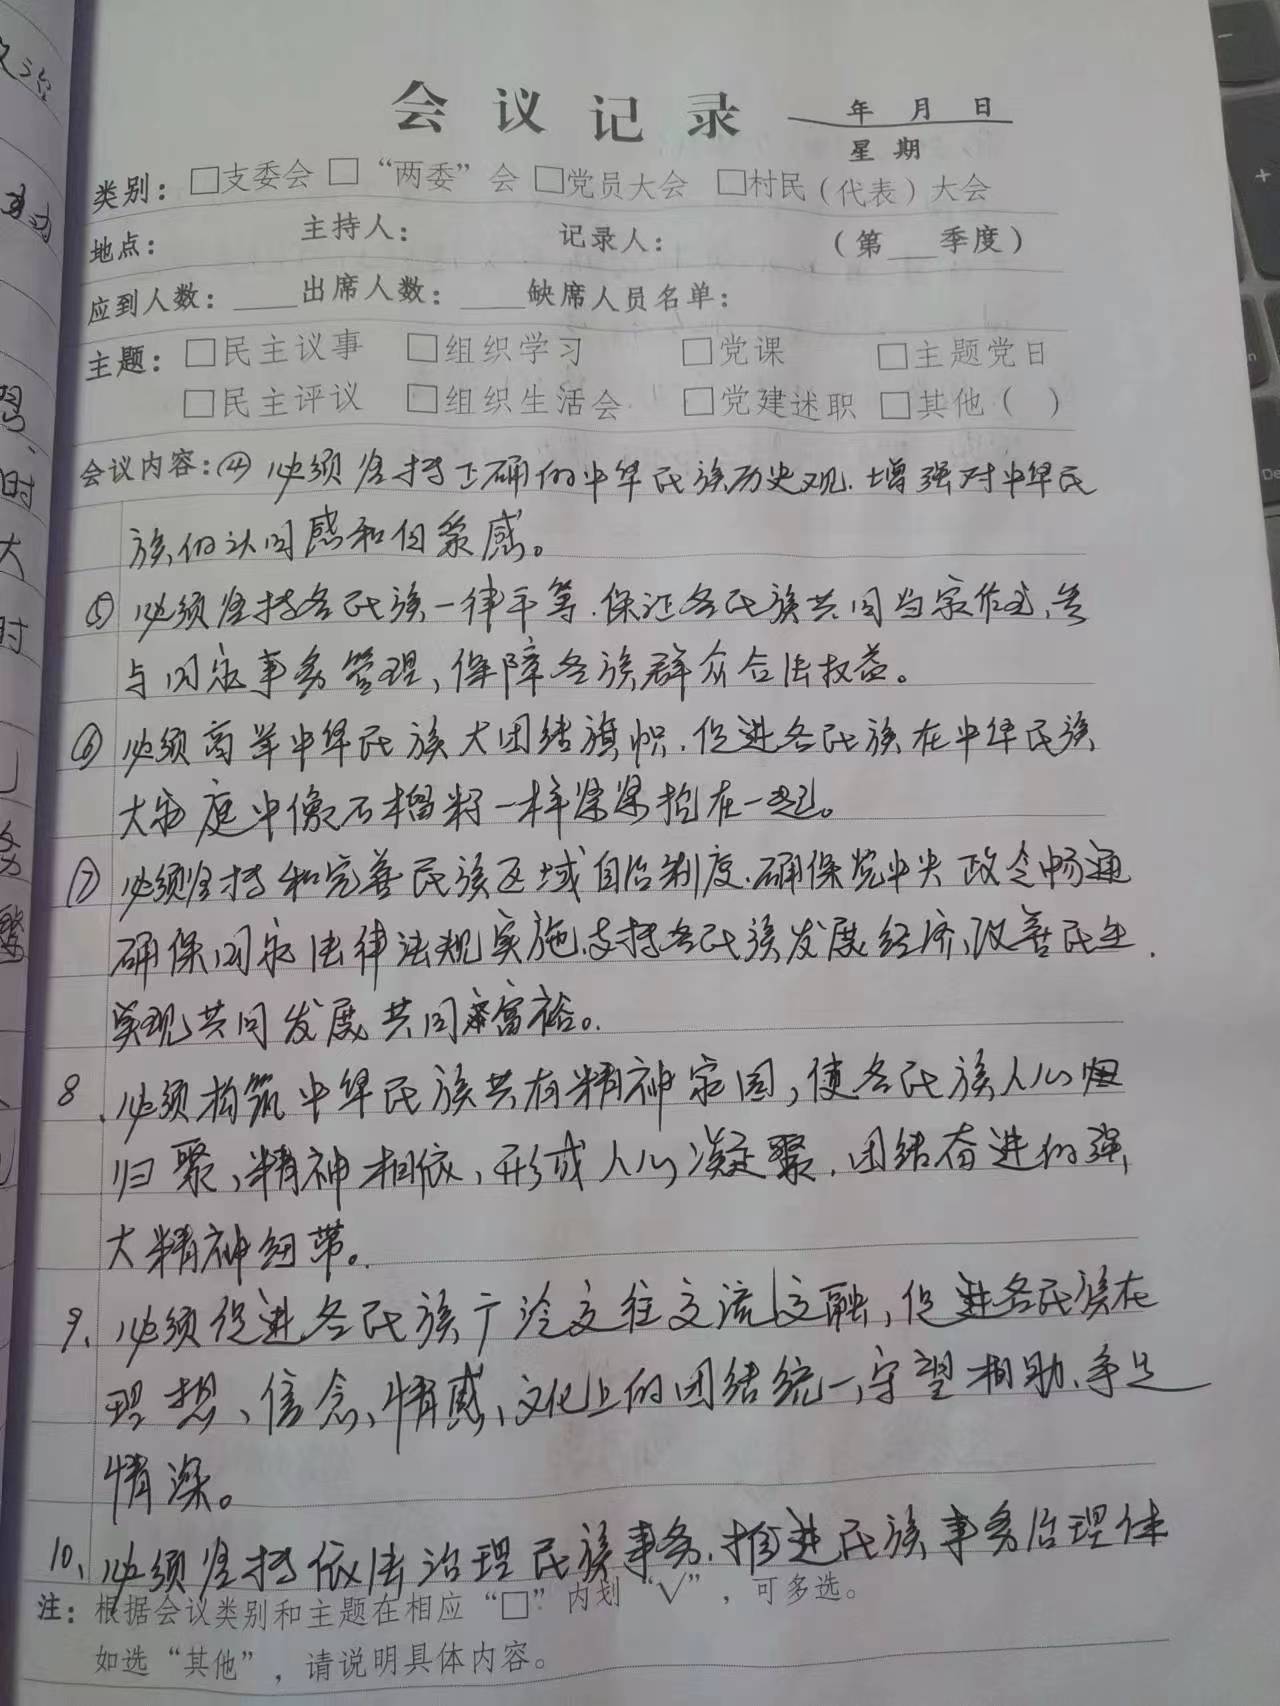 会议记录
年 月 日
星期
类别：□支委会 □“两委”会 □党员大会 □村民（代表）大会
地点： 主持人： 记录人： （第___季度）
应到人数：____出席人数：____缺席人员名单：
主题：□民主议事 □组织学习 □党课 □主题党日
□民主评议 □组织生活会 □党建述职 □其他（ ）
会议内容：④ 必须坚持正确的中华民族历史观，增强对中华民
族的认同感和自豪感。
⑤ 必须坚持各民族一律平等，保证各民族共同当家作主、参
与国家事务管理，保障各族群众合法权益。
⑥ 必须高举中华民族大团结旗帜，促进各民族在中华民族
大家庭中像石榴籽一样紧紧抱在一起。
⑦ 必须坚持和完善民族区域自治制度，确保党中央政令畅通
确保国家法律法规实施，支持各民族发展经济、改善民生，
实现共同发展共同富裕。
8、必须构筑中华民族共有精神家园，使各民族人心
归聚、精神相依，形成人心凝聚、团结奋进的强
大精神纽带。
9、必须促进各民族广泛交往交流交融，促进各民族在
理想、信念、情感、文化上的团结统一，守望相助、手足
情深。
10、必须坚持依法治理民族事务，推进民族事务治理体
注：根据会议类别和主题在相应“□”内划“√”，可多选。
如选“其他”，请说明具体内容。